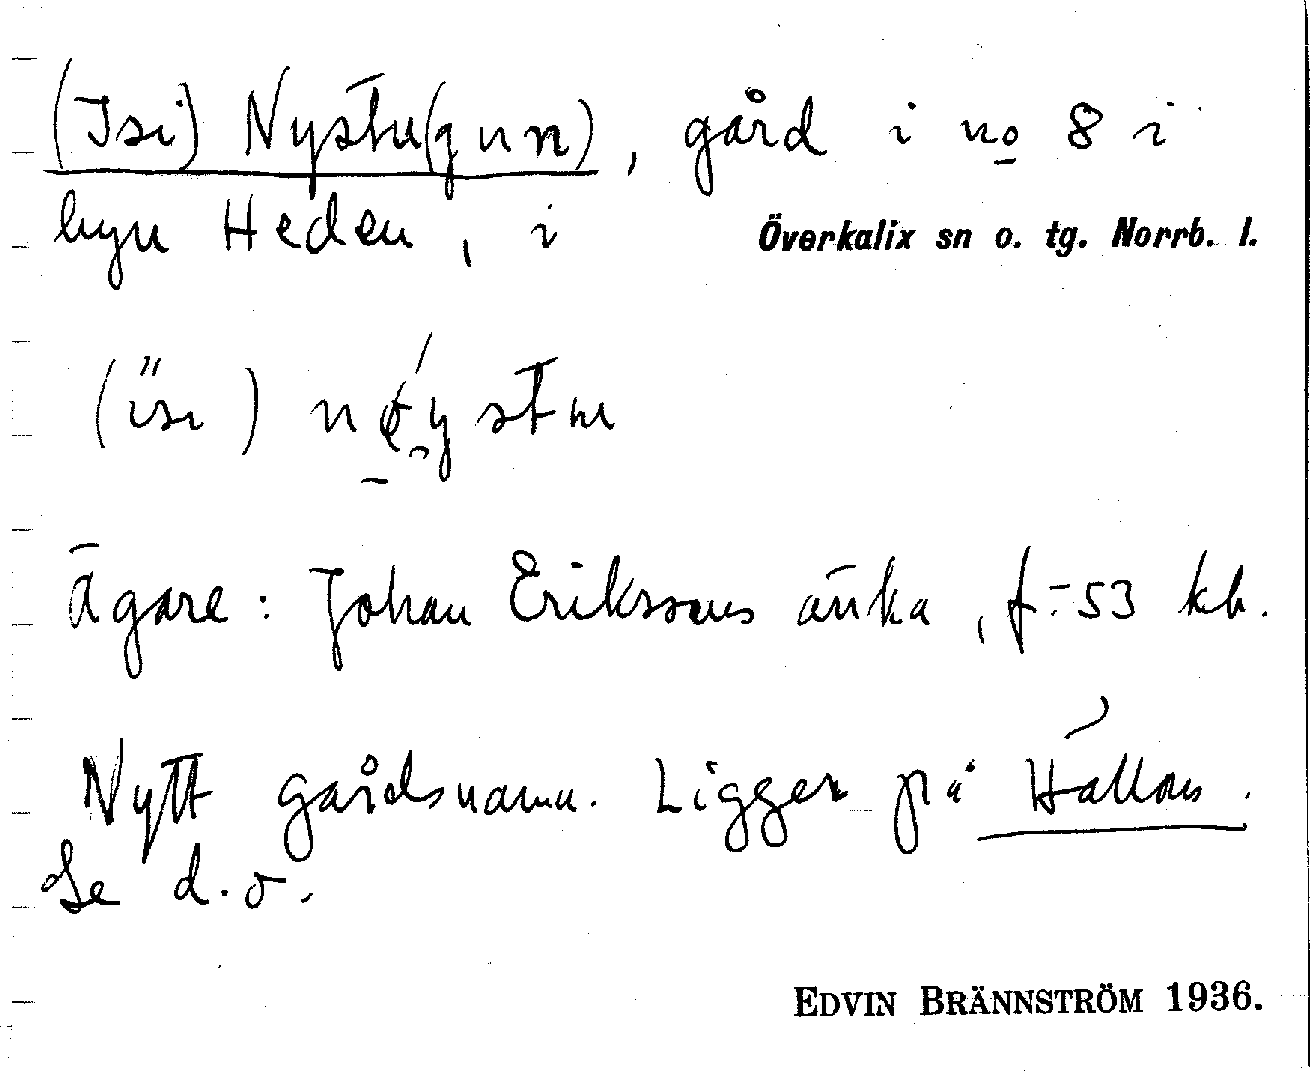 (Isi) Nystu(gun), gård i no 8 i
byn Heden, i Överkalix sn o. tg. Norrb. l.
(isi) nøystu
Ägare: Johan Erikssons änka, f. -53 kb.
Nytt gårdsnamn. Ligger på Hällan.
Se d.o.
EDVIN BRÄNNSTRÖM 1936.